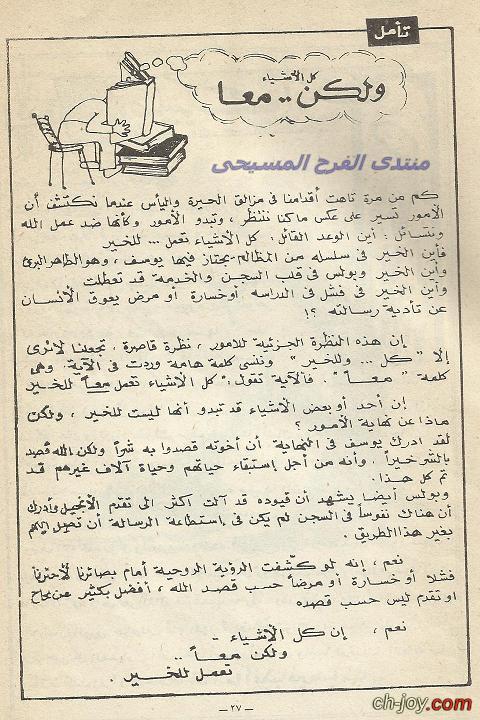 تأمل
كل الأشياء
ولكن .. معا
منتدى الفرح المسيحى
كم من مرة تاهت أقدامنا في مزالق الحيرة واليأس عندما نكتشف أن
الأمور تسير على عكس ما كنا ننتظر ، وتبدو الأمور وكأنها ضد عمل الله
ونتسائل : أين الوعد القائل : كل الأشياء تعمل ... للخير
فأين الخير في سلسله من المظالم يجتاز فيها يوسف ، وهو الطاهر البرئ
وأين الخير وبولس في قلب السجن والخدمة قد تعطلت
وأين الخير في فشل في الدراسه أو خسارة أو مرض يعوق الأنسان
عن تأدية رسالته ؟!
إن هذه النظرة الجزئية للأمور ، نظرة قاصرة ، تجعلنا لا نرى
إلا " كل ... وللخير " وننسى كلمة هامة وردت في الآية . وهى
كلمة " معاً " . فالآية تقول : " كل الأشياء تعمل معاً للخير
إن أحد أو بعض الأشياء قد تبدو أنها ليست للخير ، ولكن
ماذا عن نهاية الأمور ؟
لقد ادرك يوسف في النهاية أن أخوته قصدوا به شراً ولكن الله قصد
بالشر خيراً . وأنه من أجل إستبقاء حياتهم وحياة آلاف غيرهم قد
تم كل هذا .
وبولس أيضا يشهد أن قيوده قد آلت أكثر الى تقدم الأنجيل وأدرك
أن هناك نفوساً في السجن لم يكن في إستطاعة الرسالة أن تصل إليهم
بغير هذا الطريق .
نعم ، إنه لو كشفت الرؤية الروحية أمام بصائرنا لأخترنا
فشلا أو خسارة أو مرضاً حسب قصد الله ، أفضل بكثير عن نجاح
او تقدم ليس حسب قصده
نعم ، إن كل الأشياء -
ولكن معاً ..
تعمل للخير .
- ٢٧ -
ch-joy.com